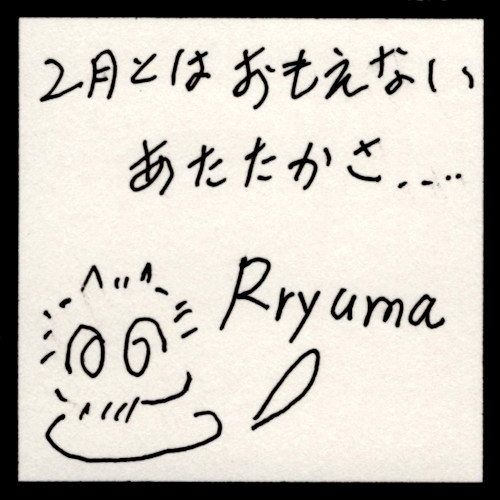 2月とはおもえない
あたたかさ....
Rryuma